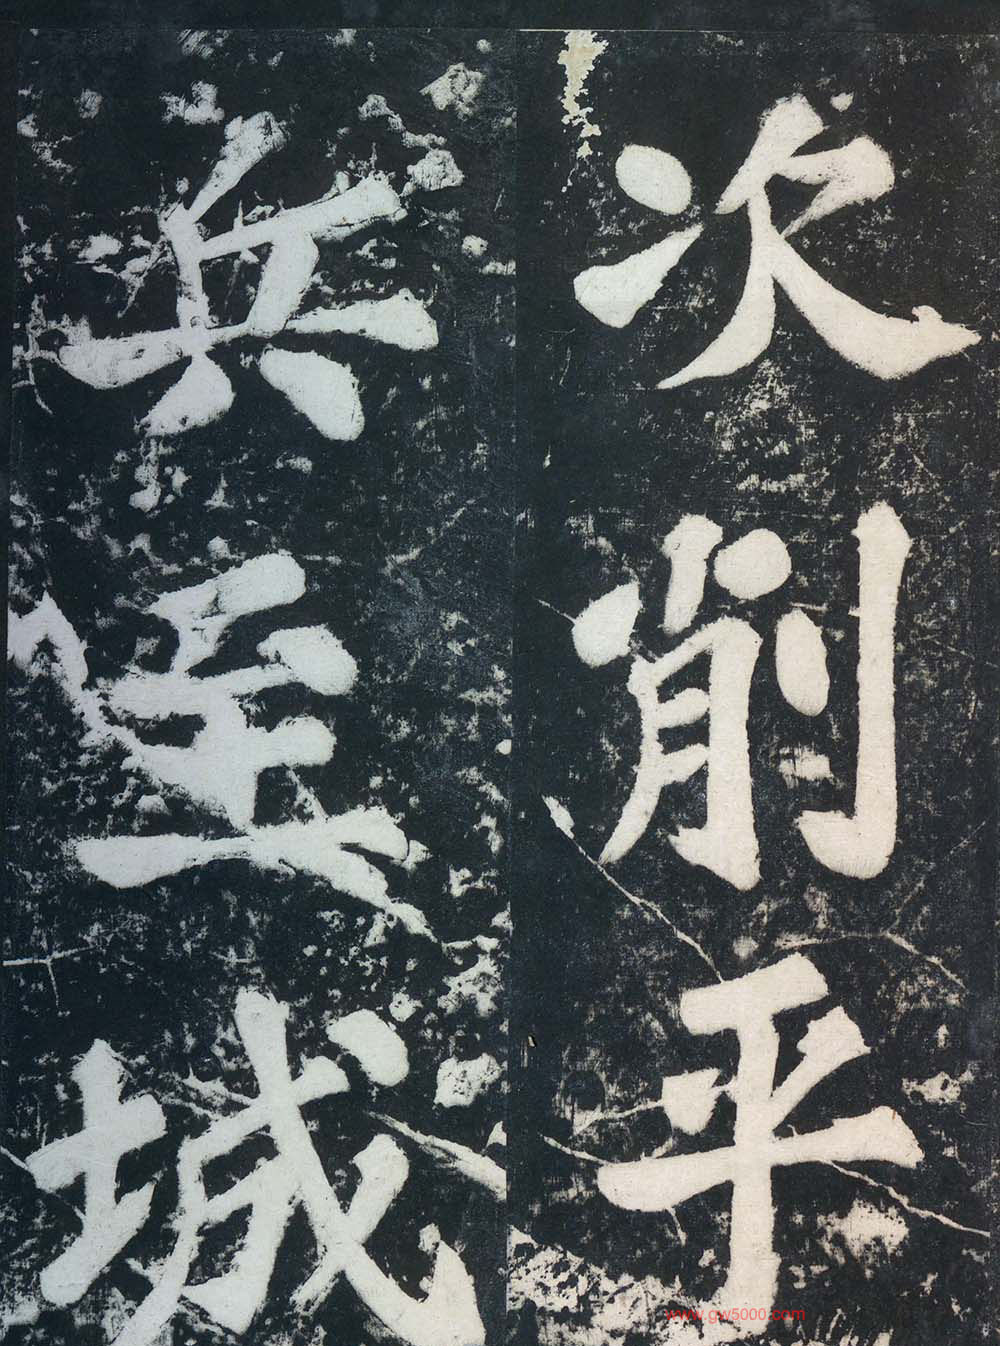 次削平
兵至城
www.gw5000.com